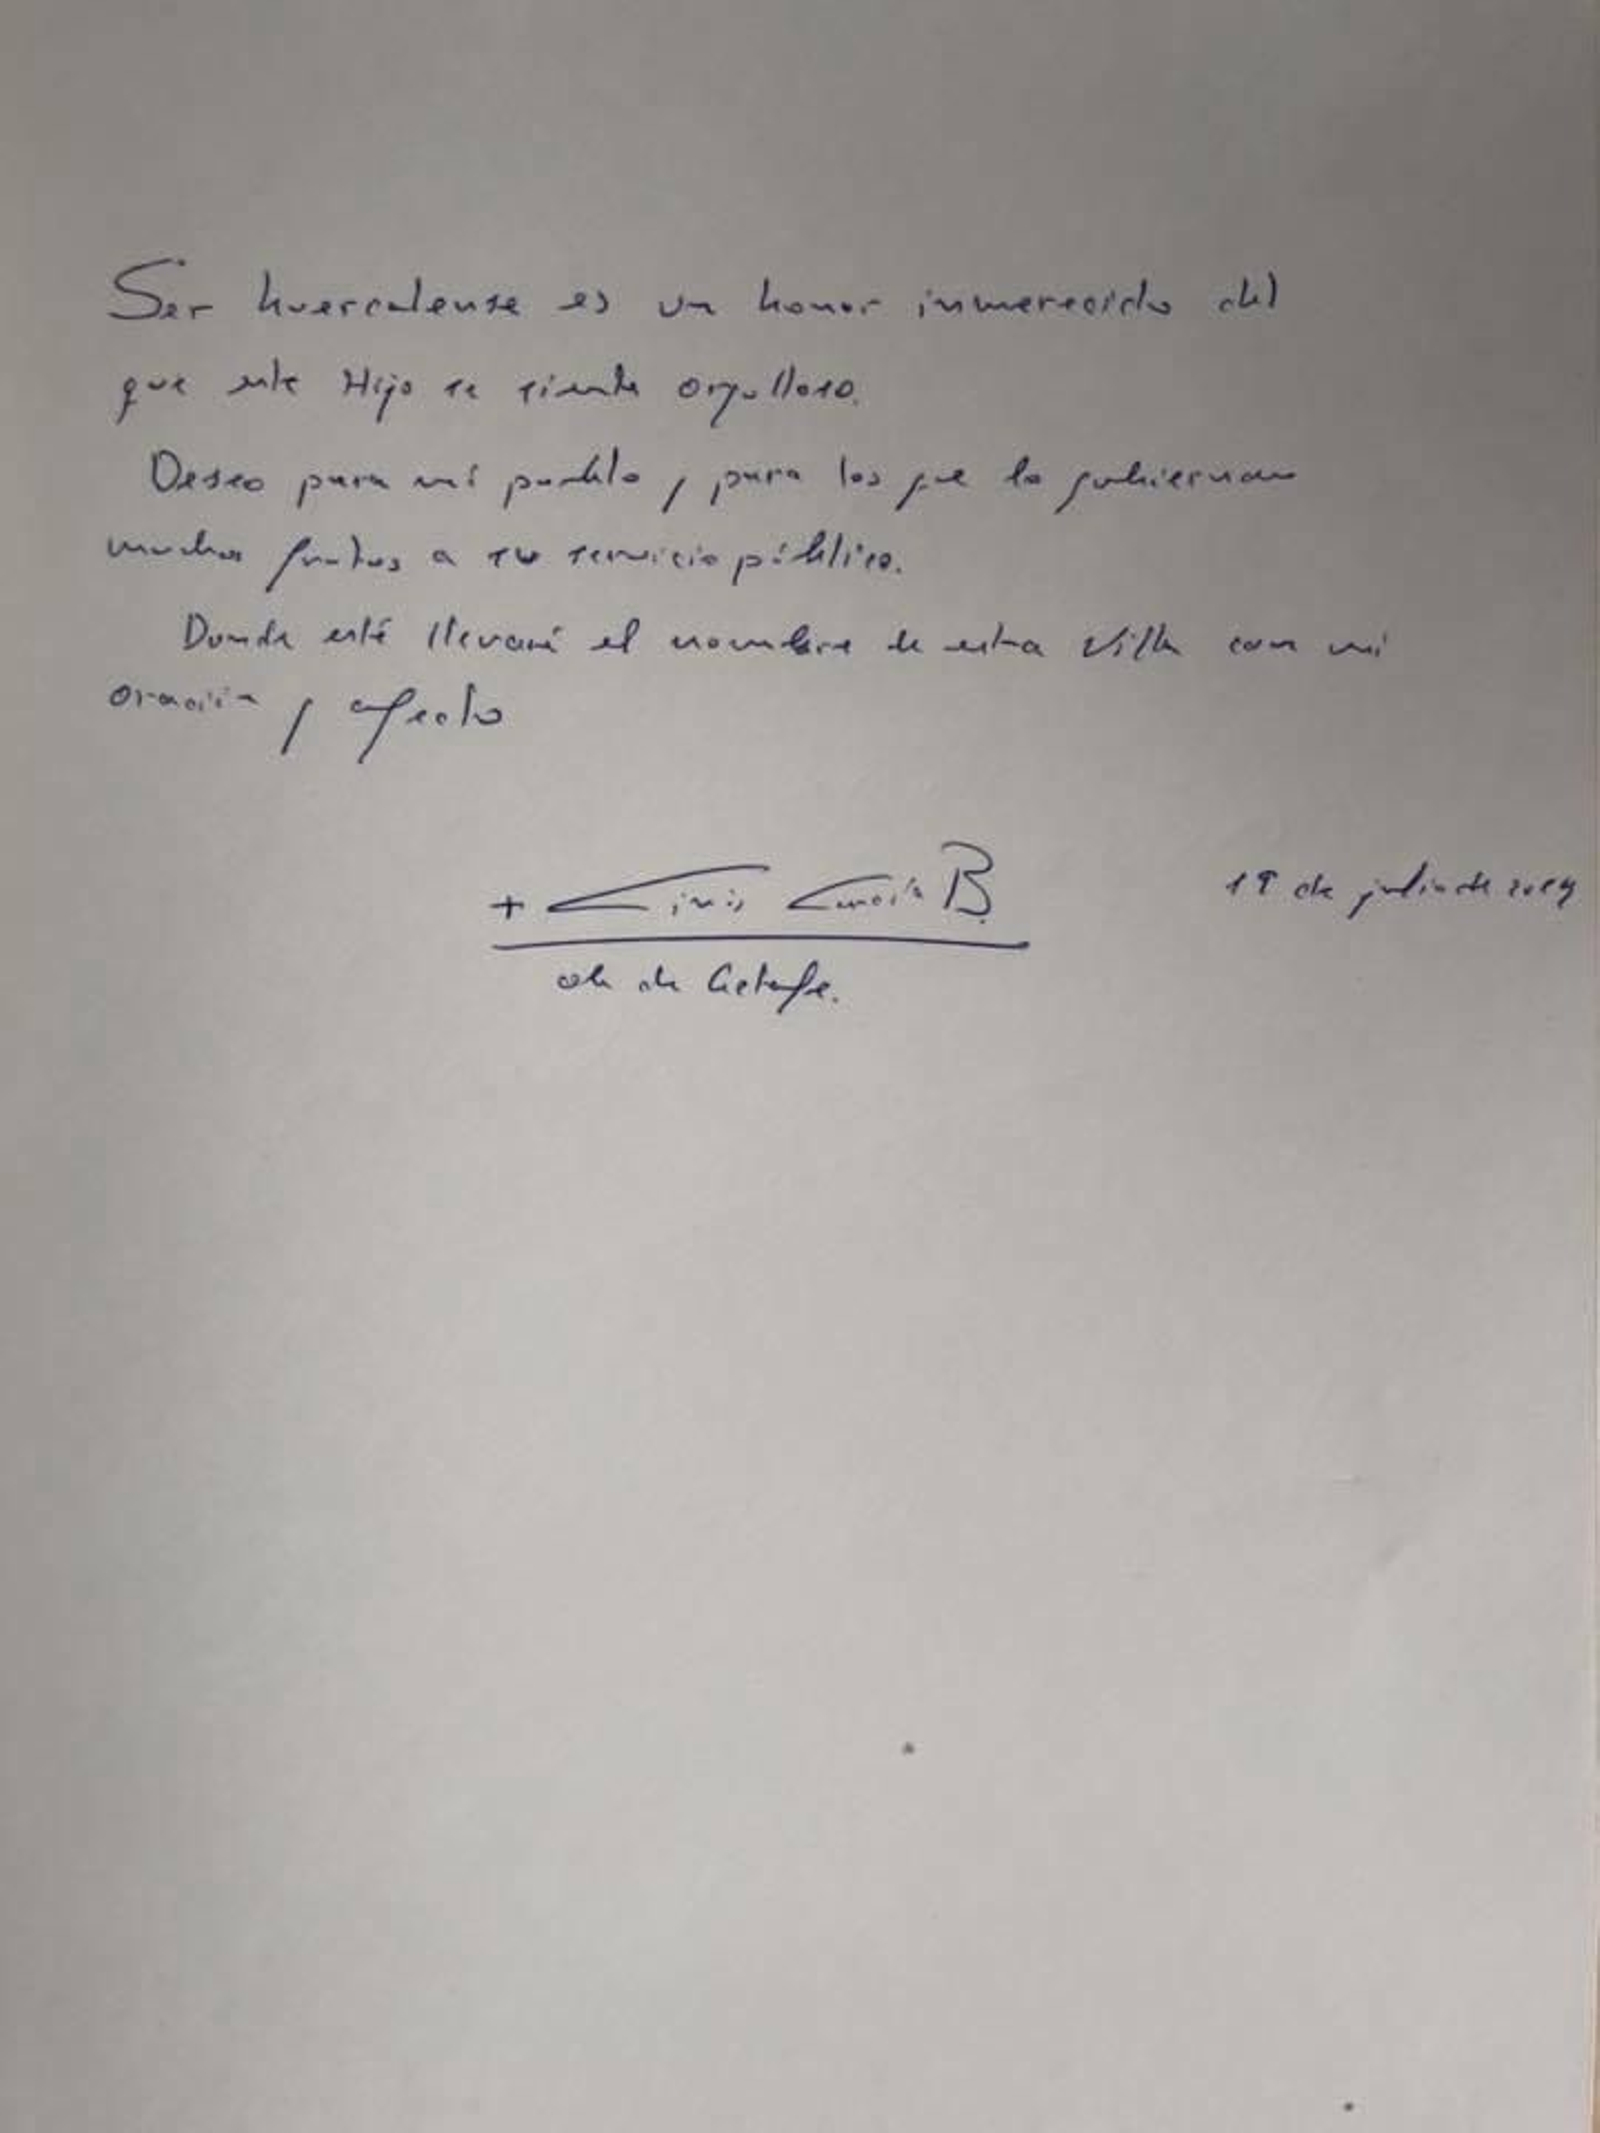 Ser huercalense es un honor inmerecido del
que este Hijo se siente orgulloso.
Deseo para mi pueblo y para los que lo gobiernan
muchos frutos a su servicio público.
Donde esté llevaré el nombre de esta Villa con mi
oración y afecto
+ Ginés García B.
ob de Getafe.
19 de julio de 2019